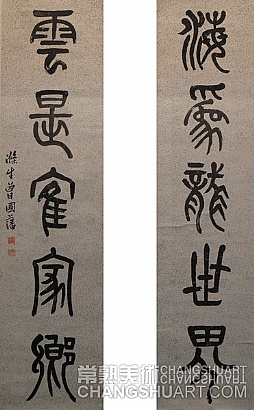 海爲龍世界
雲是隺家鄉
滌生曾國藩
常熟美術 CHANGSHUART